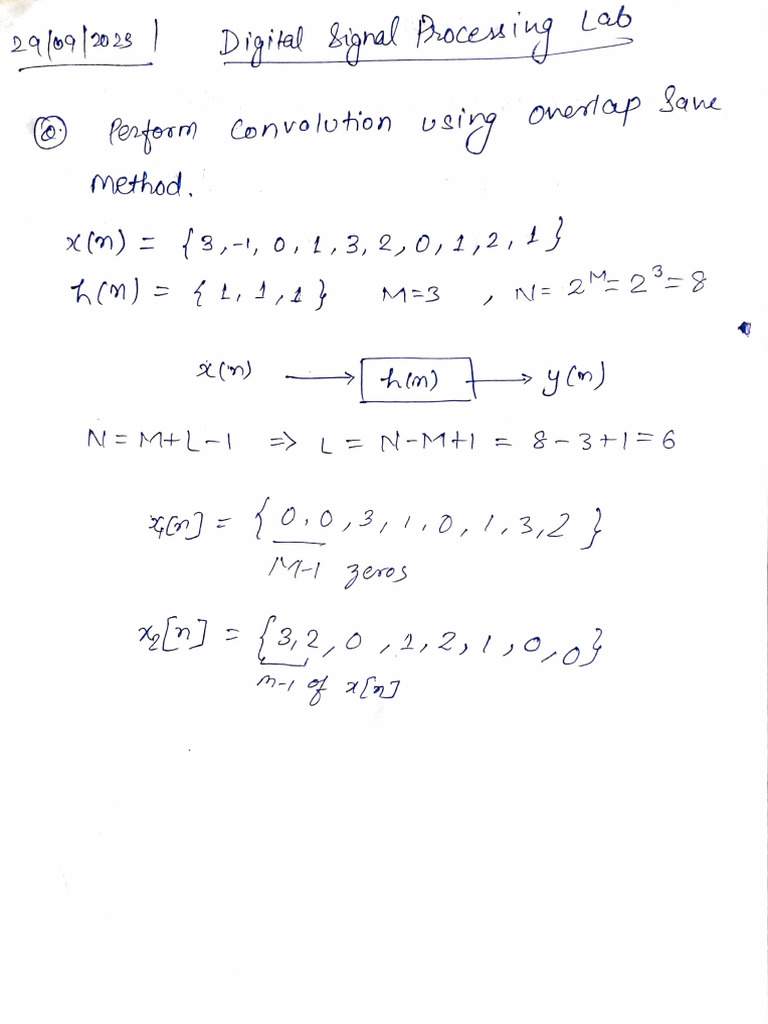 29/09/2023 | Digital Signal Processing Lab
Q. Perform convolution using overlap Save
method.
x(n) = {3,-1, 0, 1, 3, 2, 0, 1, 2, 1}
h(n) = {1, 1, 1} M=3 , N= 2^M = 2^3 = 8
x(n) → h(n) → y(n)
N = M+L-1 => L = N-M+1 = 8-3+1 = 6
x₁[n] = {0,0,3,1,0,1,3,2}
M-1 zeros
x₂[n] = {3,2,0,1,2,1,0,0}
m-1 of x[n]